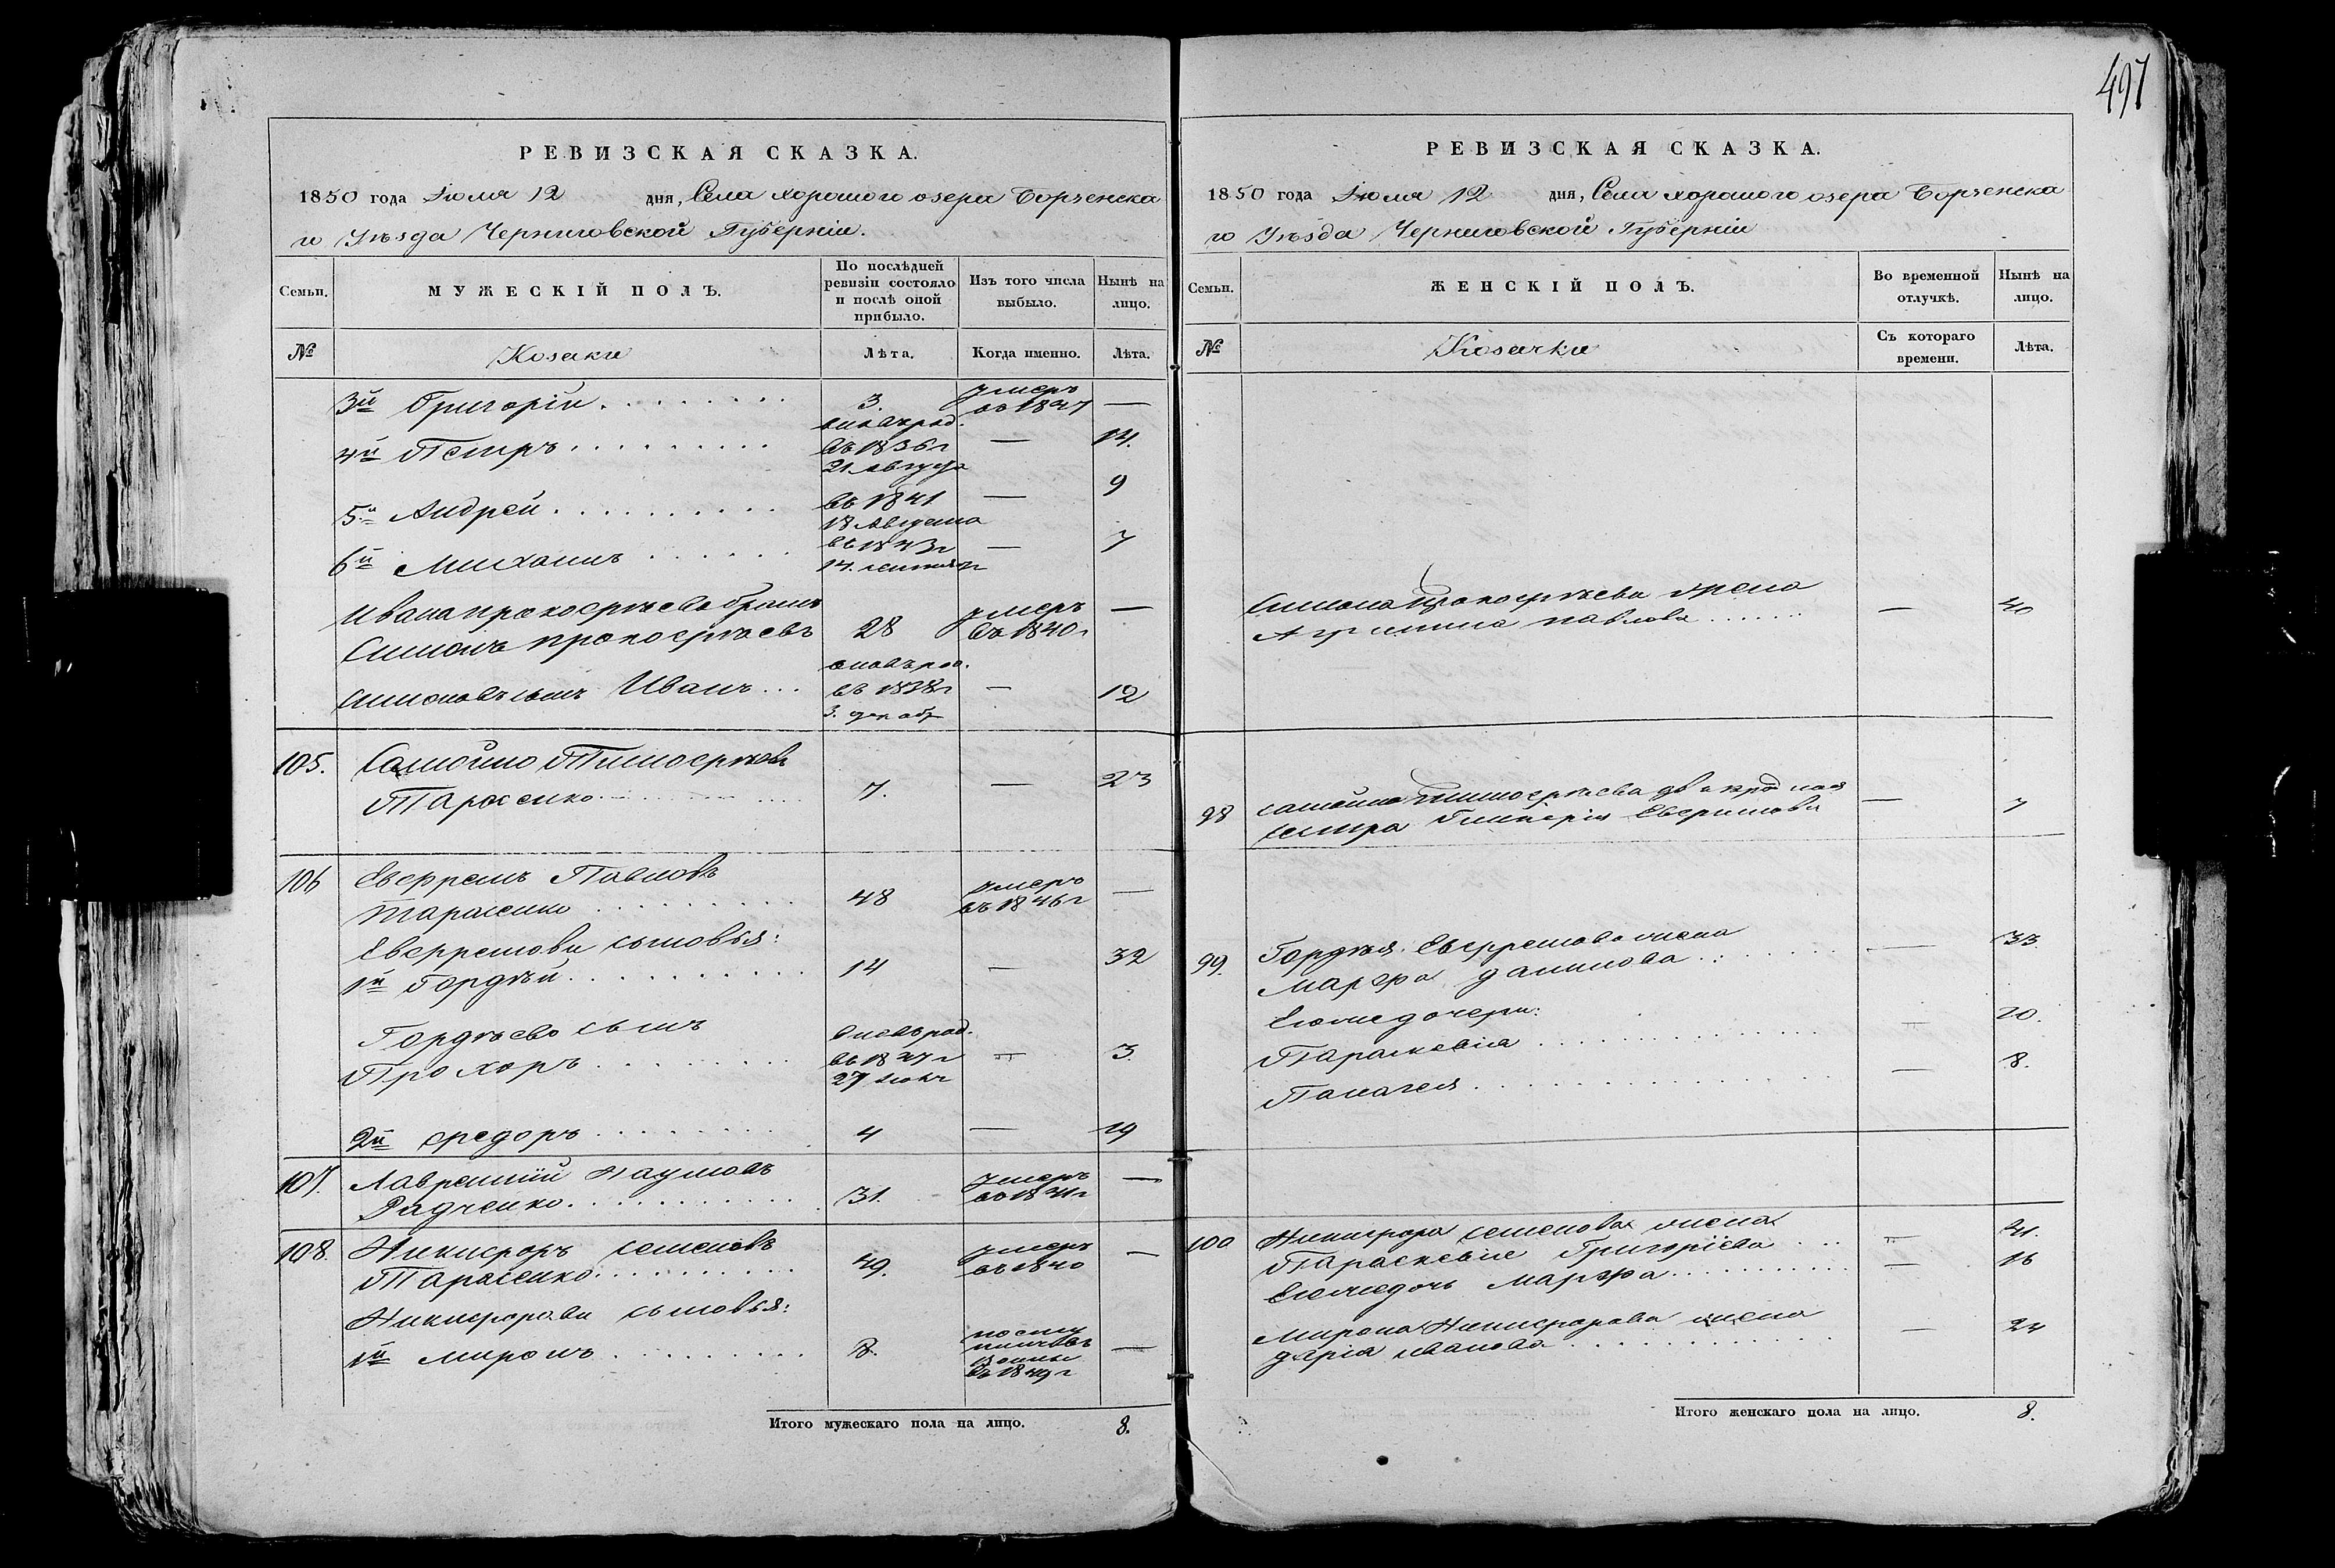 497
РЕВИЗСКАЯ СКАЗКА.
1850 года Іюля 12 дня, Села Хорошого озера Борзенска
го Уѣзда Черниговской Губерніи.
Семьи. МУЖЕСКІЙ ПОЛЪ. По послѣдней ревизіи состояло и послѣ оной прибыло. Изъ того числа выбыло. Нынѣ на лицо.
№ Козаки Лѣта. Когда именно. Лѣта.
3й Григорій 3. умеръ въ 1847 —
4й Петръ вновь род. въ 1836 г 21 августа — 14.
5й Андрей въ 1841 18 Августа — 9
6й Михаилъ въ 1843 г 14. — 7
Ивана Прокофѣева братъ
Симонъ Прокофѣевъ 28 умеръ въ 1840 г —
Симоновъ сынъ Иванъ вновь род. въ 1838 г 3. декабр — 12
105. Самойло Тимофѣевъ
Тарасенко 7. — 23
106 Евфремъ Павловъ
Тарасенко 48 умеръ въ 1846 г —
Евфремовы сыновья:
1й Гордѣй 14 — 32
Гордѣева сынъ
Прохоръ вновь род. въ 1847 г 27 — 3.
2й Федоръ 4 — 19
107. Лаврентій Наумовъ
Радченко 31. умеръ —
108. Никифоръ Семеновъ
Тарасенко 49. умеръ въ 1840 —
Никифоровы сыновья:
1й Миронъ 8. въ 1849 г —
Итого мужескаго пола на лицо. 8.
РЕВИЗСКАЯ СКАЗКА.
1850 года Іюля 12 дня, Села Хорошого озера Борзенска
го Уѣзда Черниговской Губерніи
Семьи. ЖЕНСКІЙ ПОЛЪ. Во временной отлучкѣ. Нынѣ на лицо.
№ Козачки Съ котораго времени. Лѣта.
Симона Прокофѣева жена
Агрипина Павлова — 40
98 Самойла Тимофѣева двоюродная
сестра Гликерія Евфимова — 7
99. Гордѣя Евфремова жена
Марфа Данилова — 33.
Ихъ дочери:
Параскевіа — 10.
Палагея — 8.
100 Никифора Семенова жена
Параскевіа Григоріева — 41.
Ихъ дочь Марфа — 16
Мирона Никифорова жена
Дарія Иванова — 24
Итого женскаго пола на лицо. 8.